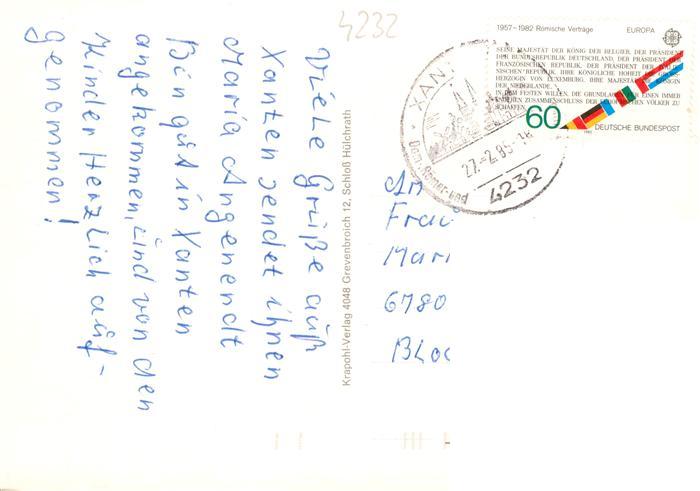 4232
Viele Grüße auß
Xanten sendet ihnen
Maria Angenendt
Bin gut in Xanten
angekommen, und von den
Kinder Herzlich auf-
Genommen!
Krapohl-Verlag 4048 Grevenbroich 12, Schloß Hülchrath
1957–1982 Römische Verträge
EUROPA
SEINE MAJESTÄT DER KÖNIG DER BELGIER, DER PRÄSIDENT
DER BUNDESREPUBLIK DEUTSCHLAND, DER PRÄSIDENT
FRANZÖSISCHEN REPUBLIK, DER PRÄSIDENT DER
NISCHEN REPUBLIK, IHRE KÖNIGLICHE HOHEIT
HERZOGIN VON LUXEMBURG, IHRE MAJESTÄT KÖNIGIN
DER NIEDERLANDE,
IN DEM FESTEN WILLEN, DIE GRUNDLAGEN EINEN IMMER
ENGEREN ZUSAMMENSCHLUSS DER VÖLKER ZU
SCHAFFEN
60
DEUTSCHE BUNDESPOST
XAN
27.-2.85-18
Dom, Römer und
4232
An
Frau
Mari
6780